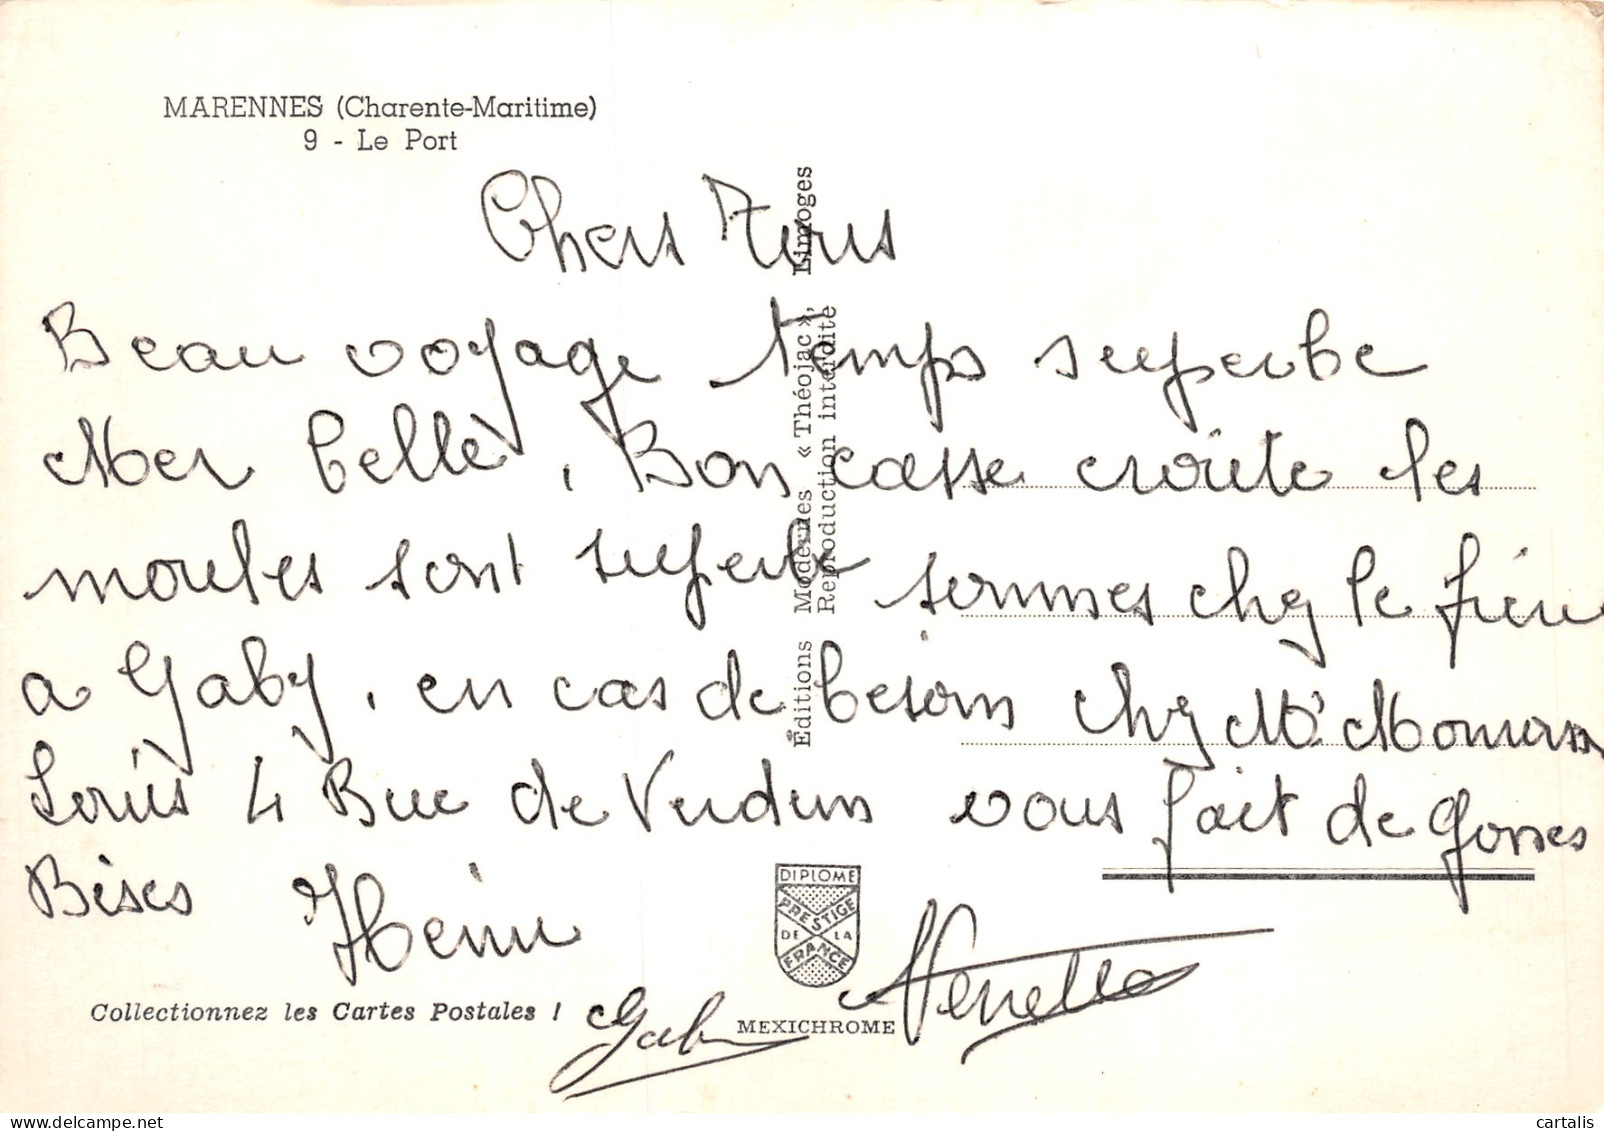 MARENNES (Charente-Maritime)
9 - Le Port
Chers Tous
Beau voyage temps superbe
Mer belle, Bon casse croûte les
moules sont superbe sommes chez le frère
a Gaby, en cas de besoin chez Mr
Louis 4 Rue de Verdun vous fait de grosses
Bises Henri
Gaby
Collectionnez les Cartes Postales !
Éditions Modernes « Théojac », Limoges
Reproduction interdite
DIPLOME
PRESTIGE
DE LA
FRANCE
MEXICHROME
cartalis